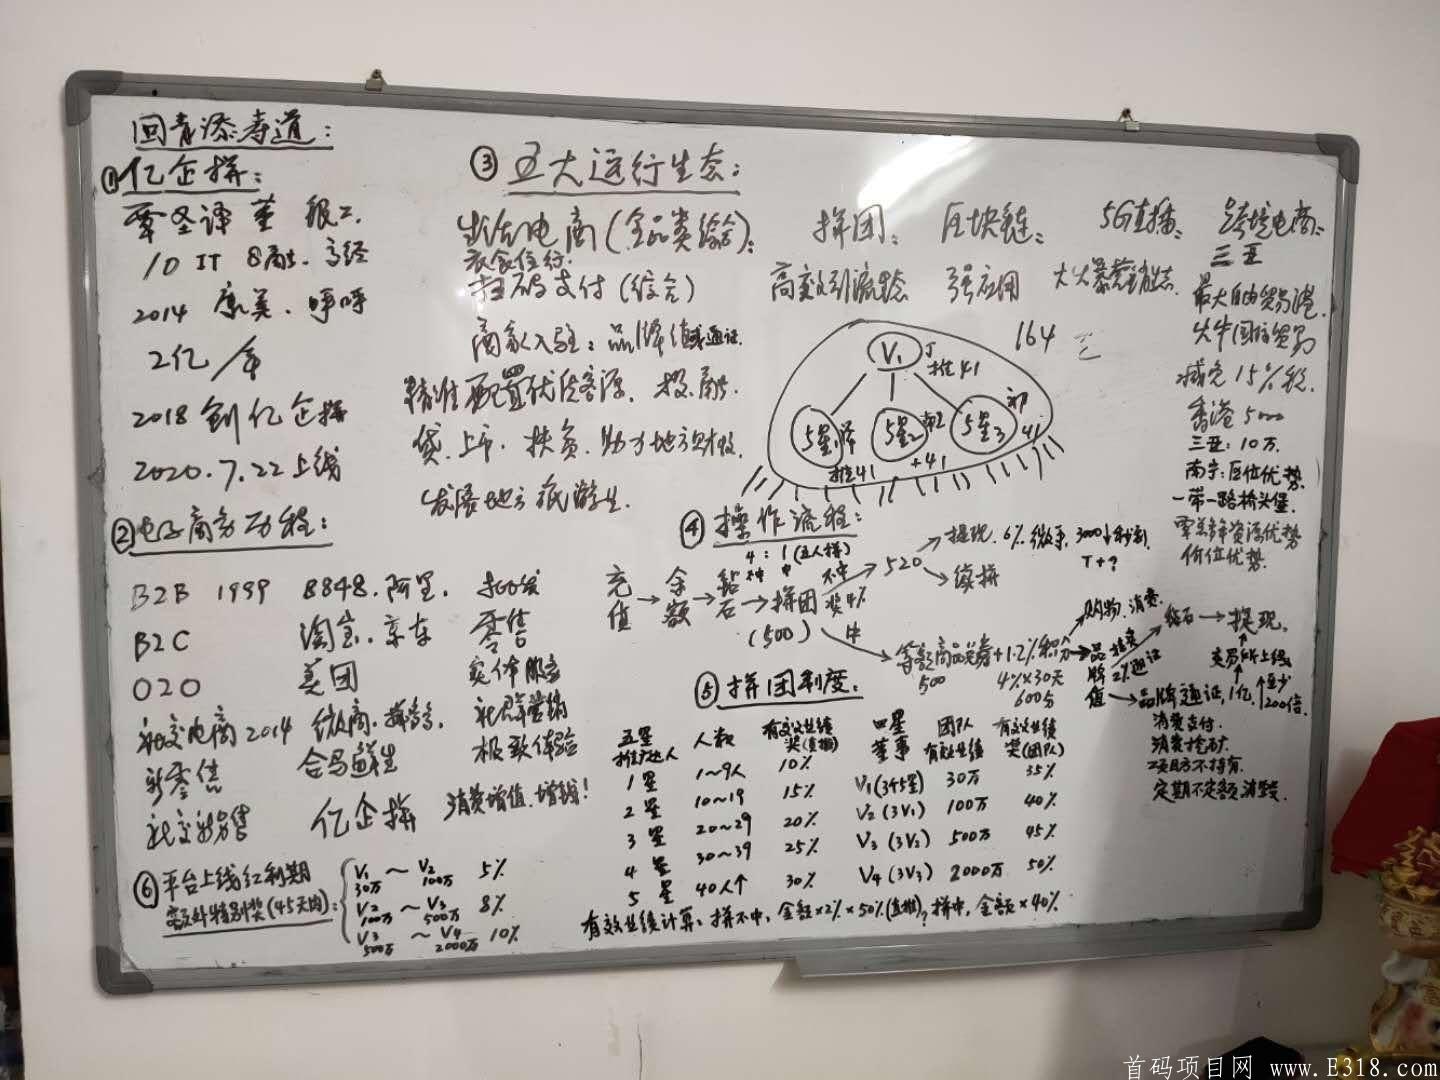 回青添寿道：
①亿企拼：
覃圣译 董
10 IT 8商 高经
2014 康美
2亿/年
2018创亿企拼
2020.7.22上线
②电子商务历程：
B2B 1999 8848.阿里. 批发
B2C 淘宝.京东 零售
O2O 美团 实体服务
社交电商2014 微商.拼多多 社群营销
新零售 合马鲜生 极致体验
社交新零售 亿企拼 消费增值.增钱！
③五大运行生态：
电商(全品类综合)：
衣食住行.
扫码支付(综合)
商家入驻：品牌值或通证
精准配置优质客源.
贷.上市.扶贫.助力地方财政.
发展地方旅游业.
拼团：
高效引流
区块链：
强应用
5G直播：
跨境电商：
三亚
最大自由贸易港.
国际贸易
减免15%税.
香港5000
三亚：10万.
南宁：区位优势.
一带一路桥头堡.
资源优势
价位优势.
164
V1
推41
5星1 5星2 5星3
推41 +41 41
④操作流程：
4：1(五人拼)
不中 中
充值→余额→钻石→拼团
(500)
不中
奖4%
→520
→提现.6%
3000↓秒到
T+?
→续拼
中
→等额商品兑券+1-2%积分
500 4%×30天
600分
→购物.消费.
→品牌值
2%通证
→钻石→提现.
交易所上线
→品牌通证.1亿.↑至少200倍.
消费支付.
消费挖矿.
项目方不持有.
定期不定额消毁.
⑤拼团制度.
五星推广达人 人数 有效业绩奖(直推) 四星董事 团队有效业绩 有效业绩奖(团队)
1星 1～9人 10% V1(3个5星) 30万 35%
2星 10～19 15% V2(3V1) 100万 40%
3星 20～29 20% V3(3V2) 500万 45%
4星 30～39 25% V4(3V3) 2000万 50%
5星 40人↑ 30%
有效业绩计算：拼不中，金额×2%×50%(直推)；拼中，金额×40%
⑥平台上线红利期
额外特别奖(45天内)：
V1 30万～V2 100万 5%
V2 100万～V3 500万 8%
V3 500万～V4 2000万 10%
首码项目网 www.E318.com